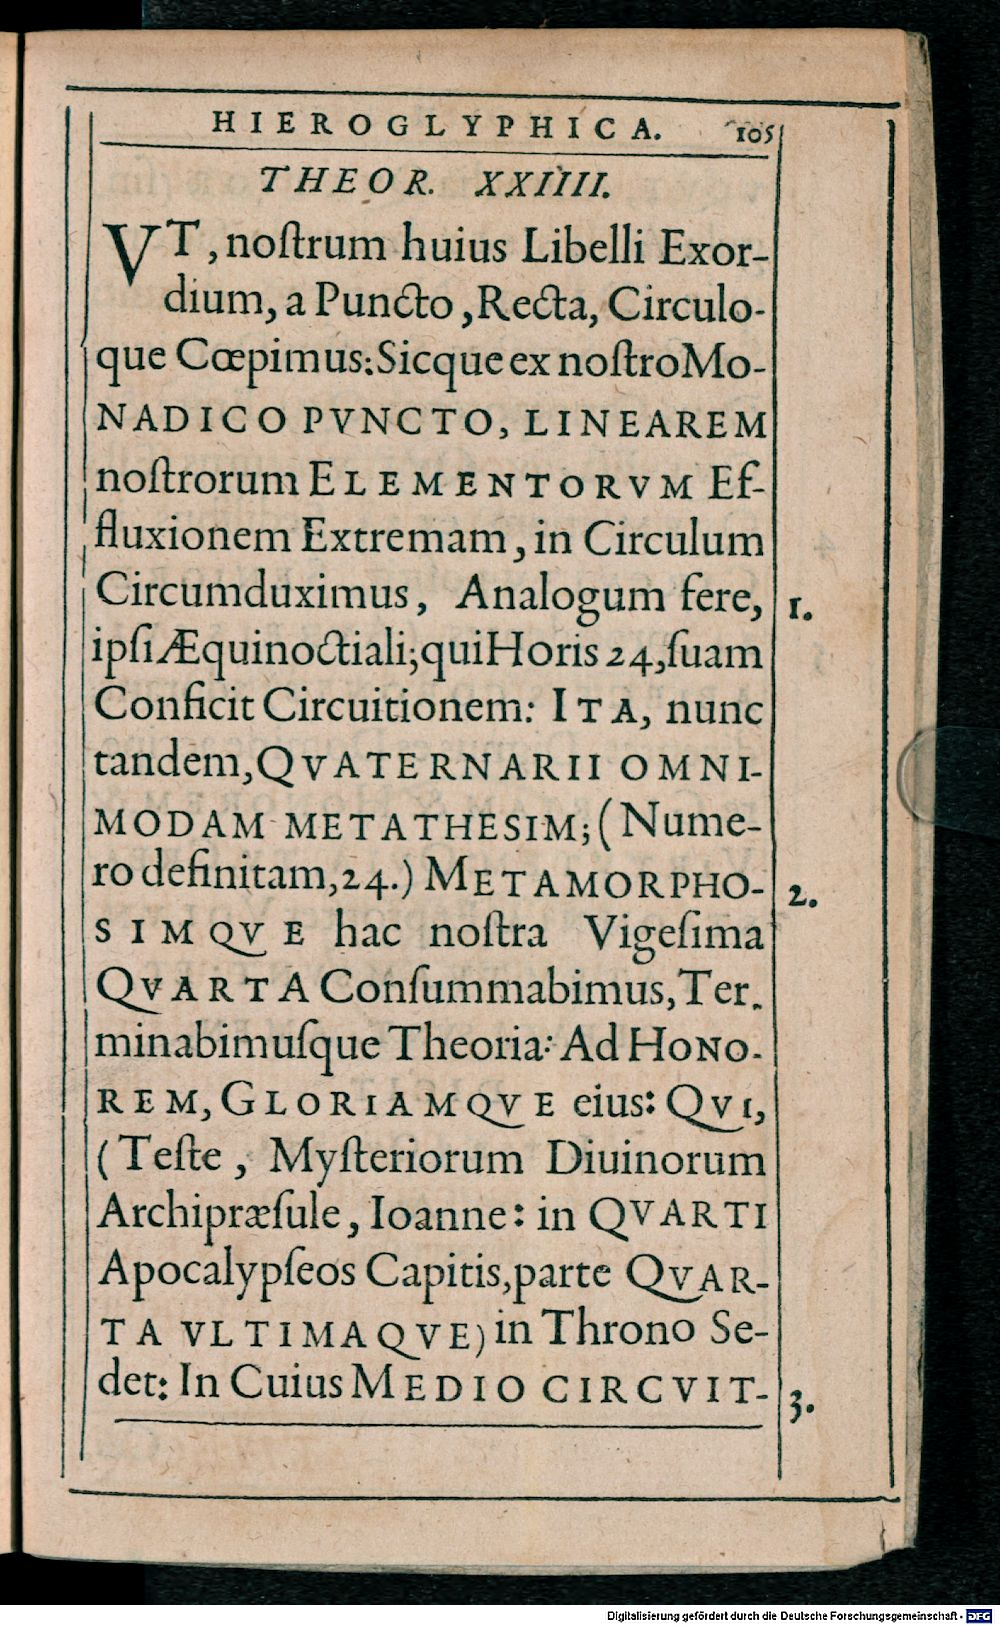 HIEROGLYPHICA. 105
THEOR. XXIIII.
VT, noſtrum huius Libelli Exor-
dium, a Puncto, Recta, Circulo-
que Cœpimus: Sicque ex noſtro Mo-
NADICO PVNCTO, LINEAREM
noſtrorum ELEMENTORVM Ef-
fluxionem Extremam, in Circulum
Circumduximus, Analogum fere, 1.
ipſi Æquinoctiali; qui Horis 24, ſuam
Conficit Circuitionem: ITA, nunc
tandem, QVATERNARII OMNI-
MODAM METATHESIM; (Nume-
ro definitam, 24.) METAMORPHO- 2.
SIMQVE hac noſtra Vigeſima
QVARTA Conſummabimus, Ter.
minabimuſque Theoria: Ad HONO-
REM, GLORIAMQVE eius: QVI,
(Teſte, Myſteriorum Diuinorum
Archipræſule, Ioanne: in QVARTI
Apocalypſeos Capitis, parte QVAR-
TA VLTIMAQVE) in Throno Se-
det: In Cuius MEDIO CIRCVIT- 3.
Digitalisierung gefördert durch die Deutsche Forschungsgemeinschaft - DFG